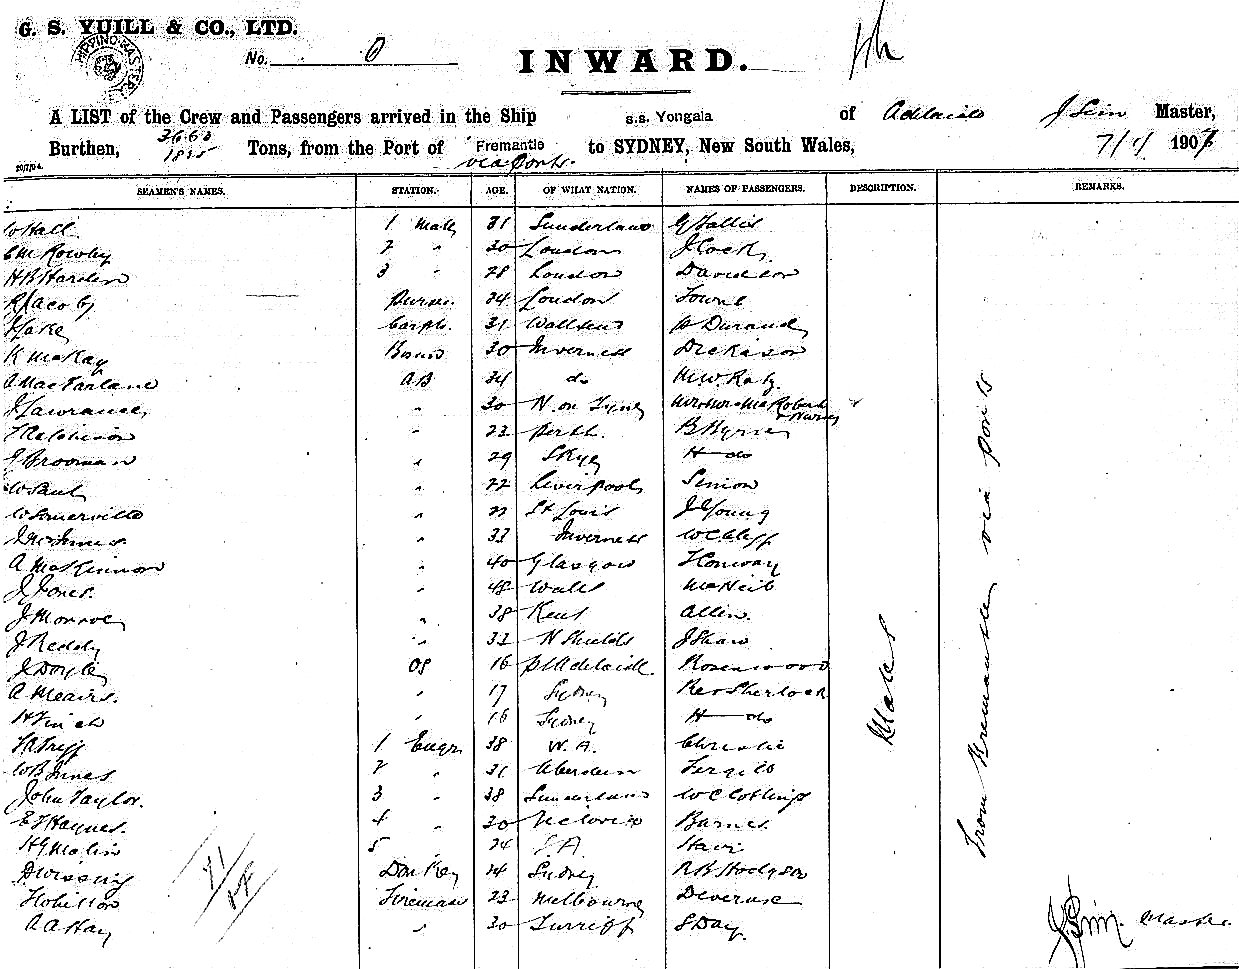 G. S. YUILL & CO., LTD.
No. 0
INWARD.
A LIST of the Crew and Passengers arrived in the Ship s.s. Yongala of Adelaide J Sim Master,
Burthen, 3663 1825 Tons, from the Port of Fremantle via ports. to SYDNEY, New South Wales, 7/1/1907
20/7/04.
SEAMEN'S NAMES. STATION. AGE. OF WHAT NATION. NAMES OF PASSENGERS. DESCRIPTION. REMARKS.
W Hall 1 Mate 31 Sunderland G Fallis
Rowley 2 " 30 London J Cock
H B Harden 3 " 28 London Davidson
R Jacoby Purser. 24 London Towne
J Lake Carptr. 31 Durand
K McKay Bosun 30 Inverness Dickison
A MacFarlane AB 34 do
J Lawrance " 30 N. on Tyne Mr & Mrs McRobert & Nurse
" 23 Perth. B Byrne
J Brooman " 29 Skye H do
W Paul " 22 Liverpool Senior
W Somerville " 21 St Louis J Young
J McInnes " 33 Inverness
A MacKinnon " 40 Glasgow Conway
J Jones. " 48 Wales McNeil
J Monroe " 38 Kent Allen.
J Reddy " 33 N Shields J Shaw
J Doyle OS 16 Pt Adelaide. Rosenwood
A Meairs. " 17 Sydney Rev Sherlock
H Finch " 16 Sydney H do
1 Engr 38 W. A. Christie
W B Innes 2 " 31 Aberdeen
John Taylor. 3 " 38 Sunderland W C Collings
E J Haynes. 4 " 30 Victoria Barnes.
H G Molin 5 24 S A
Donkey 24 Sydney R B Hodgson
Fireman 23 Melbourne Devereuse
A A Hay " 30 Turriff S Day.
Males
From Fremantle via ports
J Sim. Master.